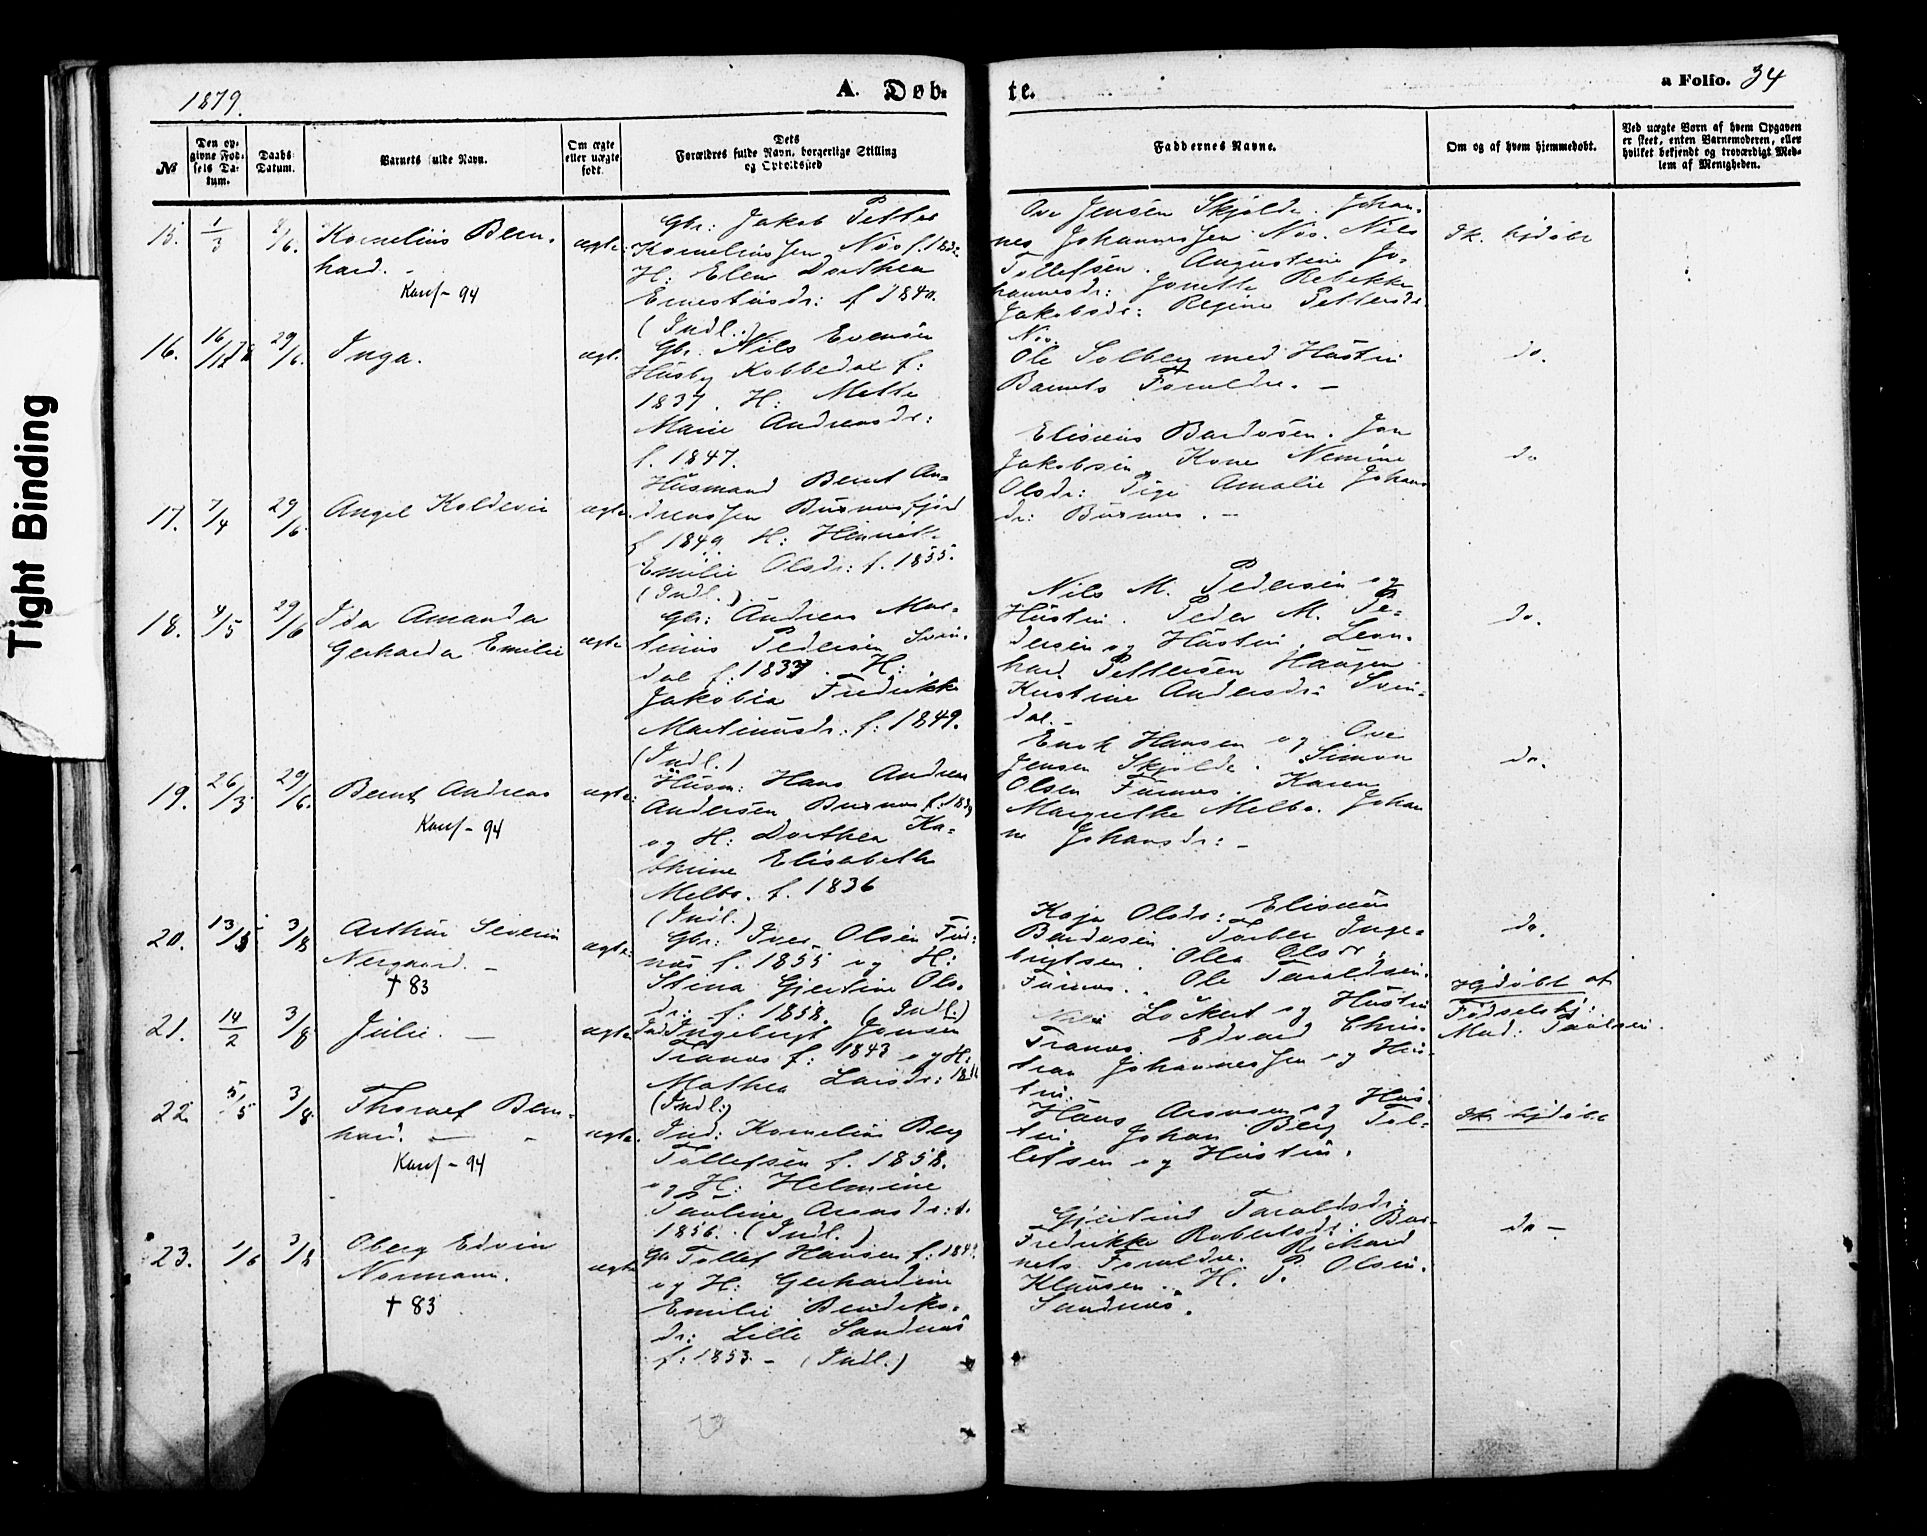 Tight Binding
1879.
A. Døb-
te.
a Folio. 34
No
Den op-
givne Fød-
sels Da-
tum.
Daabs-
Datum.
Barnets fulde Navn.
Om ægte
eller uægte
født.
Dets
Forældres fulde Navn, borgerlige Stilling
og Opholdssted
Faddernes Navne.
Om og af hvem hjemmedøbt.
Ved uægte Børn af hvem Opgaven
er skeet, enten Barnemoderen, eller
hvilket bekjendt og troværdigt Med-
lem af Menigheden.
15. 1/3 /6. Kornelius Bern-
hard. -
Konf - 94
ægte.
Gbr: Jakob Petter
Korneliussen Nøs f. 
H: Elen Dorthea
Ernestusdr: f 1840.
(Indl.)
Ove Jensen Skjølde. Johan-
nes Johannessen Nøs. Nils
Tollefsen. Augustine Jo-
hannesdr: Jonette Rebekka
Jakobsdr: Regine Pettersdr
Nøs
ik. hjdøbt
16. 16/12 78 29/6. Inga.
ægt.
Gbr. Nils Evensen
Husby Kobbedal f:
1837. H: Mette
Marie Andreasdr:
f. 1847.
Ole Solberg med Hustru
Barnets Forældre. -
do.
17. 7/4 29/6 Angel Koldevin
ægte.
Husmand Bernt An-
dreassen Burnesfjord
f 1849. H: Henriet-
Emilie Olsdr: f. 1855.
(Indl.)
Eliseus Bardosen. Jan
Jakobsen, Kone Nemine
Olsdr: Pige Amalie Johans
dr: Burnes. -
do
18. 4/5 29/6 Ida Amanda
Gerharda Emilie
ægte
Gbr: Andreas Mar-
tinus Pedersen Svin-
dal f: 1837. H:
Jakobia Fredrikke
Martinusdr: f: 1849.
(Indl.)
Nils M. Pedersen og
Hustru. Peder M. Pe-
dersen og Hustru, Leon-
hard Pettersen Haugen.
Kristine Andersdr: Svin-
dal.
do.
19. 26/3 29/6. Bernt Andreas
Konf - 94
ægte:
Husm: Hans Andreas
Andersen Burnes f: 
og H: Dorthea Ka-
thrine Elisabeth
Melbo. f. 1836
(Indl.)
Enok Hansen og Ove
Jensen Skjølde. Simon
Olsen Furnes. Karen
Margrethe Melbo. Johan
ne Johansdr: -
do.
20. 13/ 3/8 Arthur Severin
Nergaard. -
† 83
ægte.
Gbr: Iver Olsen Fur-
nes f. 1855 og H:
Stina Gjertine Ols-
dr: f: 1858. (Indl.)
Kaja Olsdr: Eliseus
Bardosen. Torber Inge-
brigtsen. Olea Olsdr
Furnes. Ole Taraldsen.
do.
21. 14/2 3/8 Julie. -
ægte
Ind: Ingebrigt Jonsen
Tranøs f: 1843 og H:
Mathea Larsdr:
(Indl:)
Løkert og Hustru
Tranøs. Edvard Chris-
tian Johannessen og Hus-
tru.
Hjdøbt af
Fødselshj:
Mad: Paulsen.
22. 5/5 3/8 Thoralf Bern-
hard. -
Konf - 94
ægte.
Ind: Kornelius Berg
Tollefsen f. 1858.
og H: Helmine
Pauline Aronsdr: f.
1856. (Indl.)
Hans Aronsen og Hus-
tru. Johan Berg Tol-
lefsen og Hustru.
ik hjdøbt
23. 1/6 3/8 Oberg Edvin
Normann.
† 83
ægte
Gbr Tollef Hansen f: 
og H: Gerhardine
Emilie Bendiks-
dr: Lille Sandnes
f: 1853. - (Indl.)
Gjertrud Taraldsdr:
Fredrikke Robertsdr: Bar-
nets Forældre. Rikard
Klausen. H. P. Olsen.
Sandnes.
do -